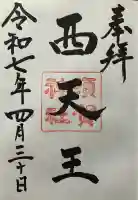 奉拝
西天王
令和七年四月三十日